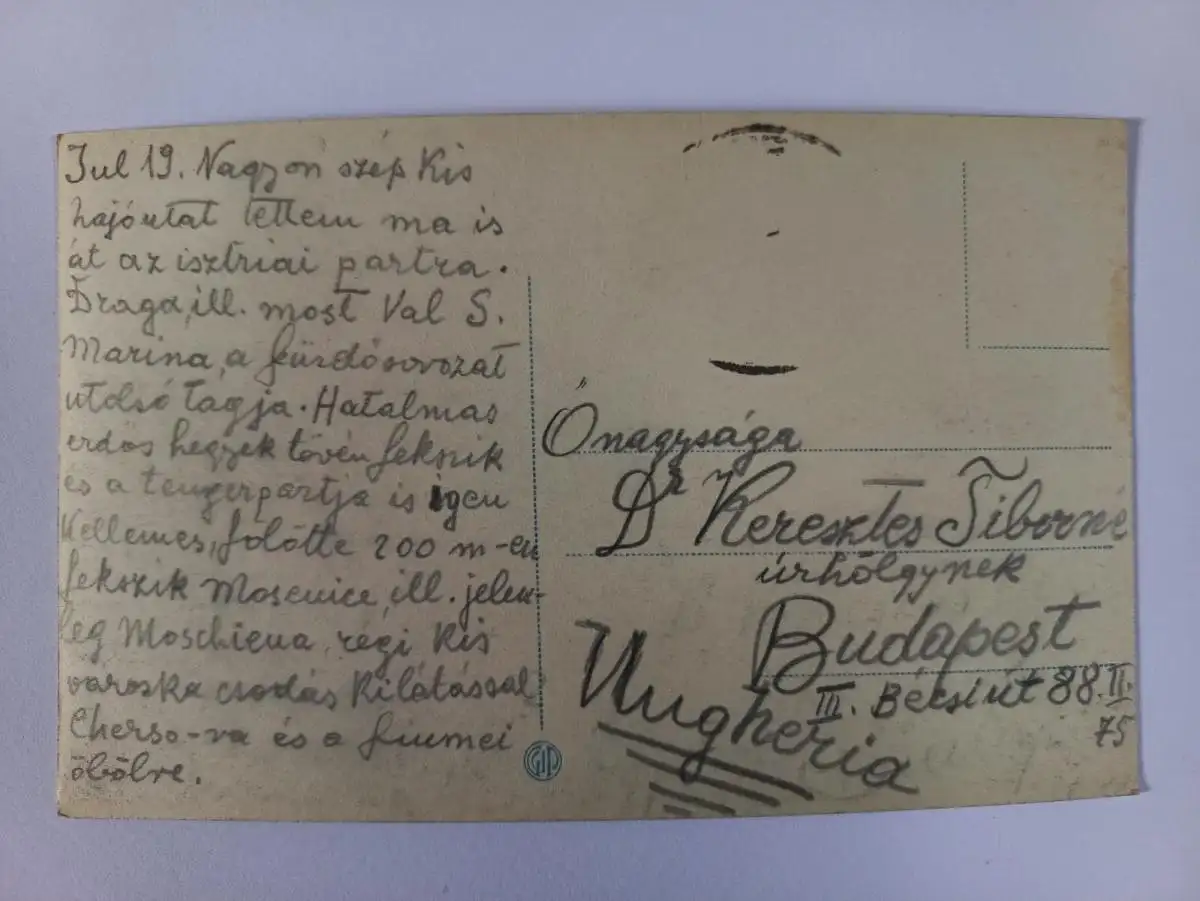 Jul 19. Nagyon szép kis
hajóutat tettem ma is
át az isztriai partra.
Draga, ill. most Val S.
Marina, a fürdősorozat
utolsó tagja. Hatalmas
erdős hegyek tövén fekszik
és a tengerpartja is igen
kellemes, fölötte 200 m-en
fekszik Moscenice, ill. jelen-
leg Moschiena, régi kis
városka csodás kilátással
Cherso-va és a fiumei
öbölre.
Őnagysága
Dr Keresztes Tiborné
úrhölgynek
Budapest
III. Bécsi út 88. II.
75
Ungheria